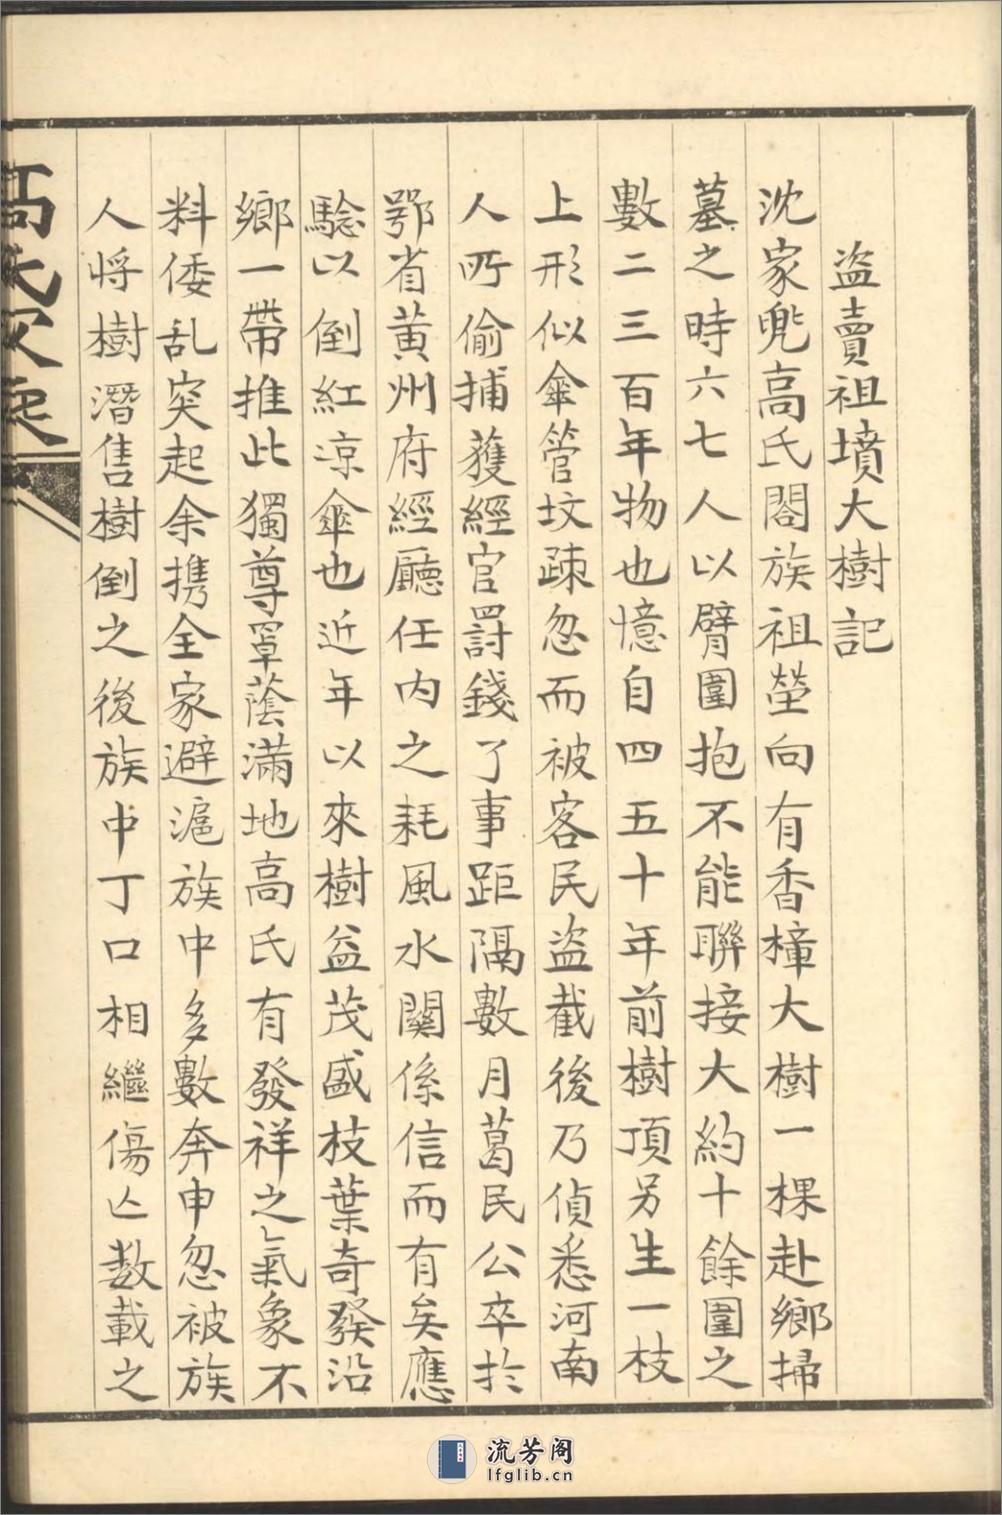 盜賣祖墳大樹記
沈家兜高氏閤族祖塋向有香樟大樹一棵赴鄉掃
墓之時六七人以臂圍抱不能聯接大約十餘圍之
數二三百年物也憶自四五十年前樹頂另生一枝
上形似傘管坟疎忽而被客民盜截後乃偵悉河南
人所偷捕獲經官罰錢了事距隔數月葛民公卒於
鄂省黃州府經廳任內之耗風水關係信而有矣應
驗以倒紅涼傘也近年以來樹益茂盛枝葉奇發沿
鄉一帶推此獨尊罩蔭滿地高氏有發祥之氣象不
料倭乱突起余携全家避滬族中多數奔申忽被族
人將樹潛售樹倒之後族中丁口相繼傷亡数載之
流芳阁
lfglib.cn